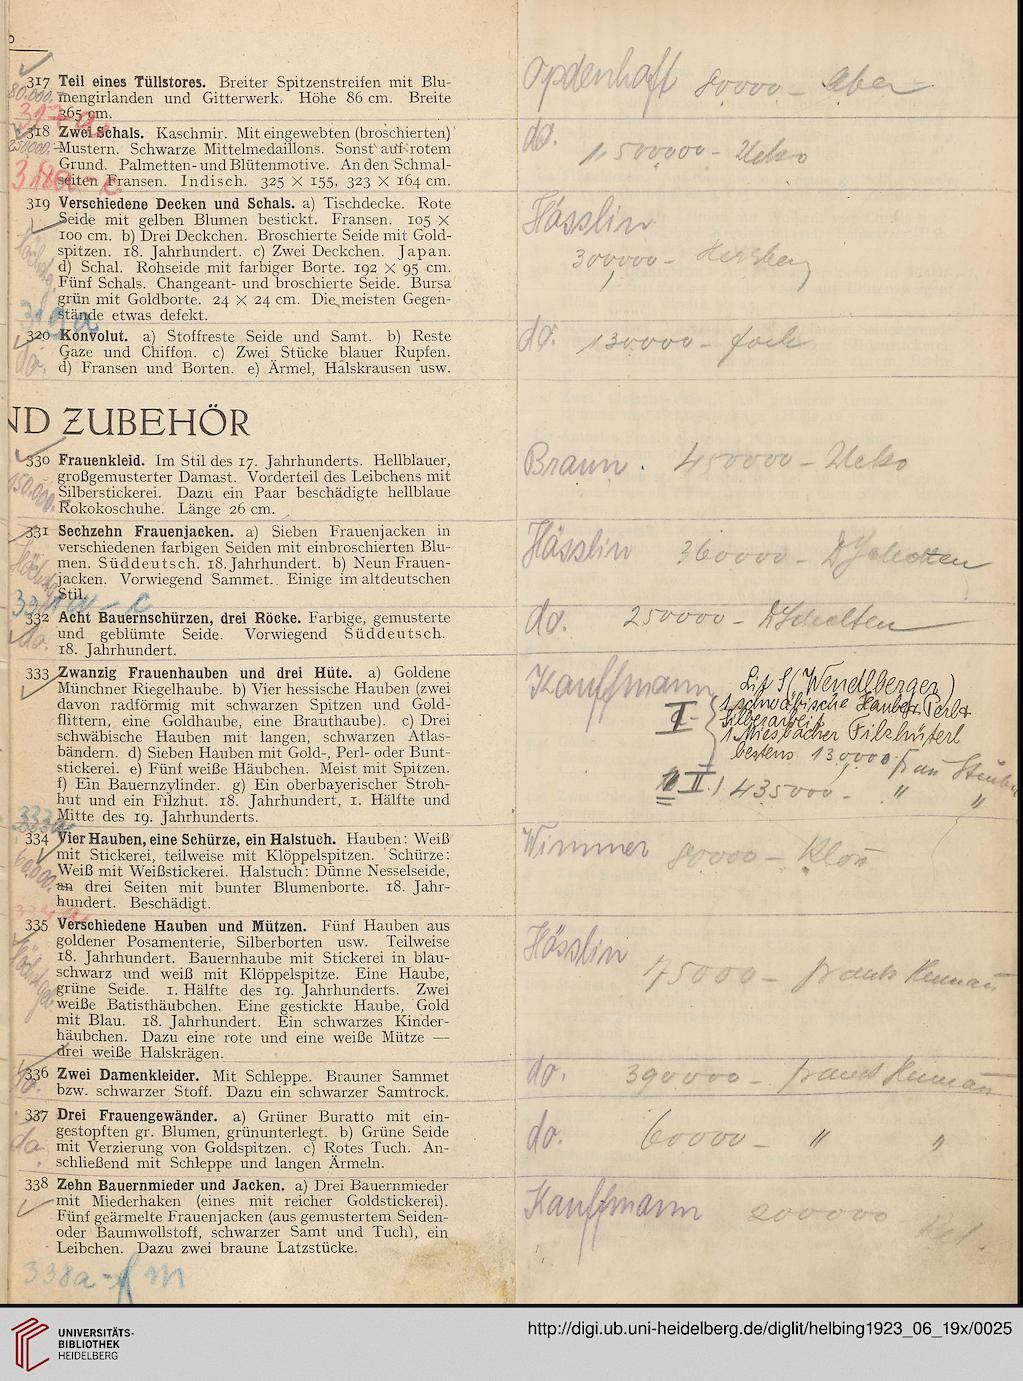 317 Teil eines Tüllstores. Breiter Spitzenstreifen mit Blu-
80.000.- mengirlanden und Gitterwerk. Höhe 86 cm. Breite
365 cm.
317a.
318 Zwei Schals. Kaschmir. Mit eingewebten (broschierten)
Mustern. Schwarze Mittelmedaillons. Sonst auf rotem
Grund. Palmetten- und Blütenmotive. An den Schmal-
seiten Fransen. Indisch. 325 × 155, 323 × 164 cm.
318a-c
319 Verschiedene Decken und Schals. a) Tischdecke. Rote
Seide mit gelben Blumen bestickt. Fransen. 105 ×
100 cm. b) Drei Deckchen. Broschierte Seide mit Gold-
spitzen. 18. Jahrhundert. c) Zwei Deckchen. Japan.
d) Schal. Rohseide mit farbiger Borte. 192 × 95 cm.
Fünf Schals. Changeant- und broschierte Seide. Bursa
grün mit Goldborte. 24 × 24 cm. Die meisten Gegen-
stände etwas defekt.
319a
320 Konvolut. a) Stoffreste Seide und Samt. b) Reste
Gaze und Chiffon. c) Zwei Stücke blauer Rupfen.
do. d) Fransen und Borten. e) Ärmel, Halskrausen usw.
ND ZUBEHÖR
330 Frauenkleid. Im Stil des 17. Jahrhunderts. Hellblauer,
großgemusterter Damast. Vorderteil des Leibchens mit
150.000.- Silberstickerei. Dazu ein Paar beschädigte hellblaue
Rokokoschuhe. Länge 26 cm.
331 Sechzehn Frauenjacken. a) Sieben Frauenjacken in
verschiedenen farbigen Seiden mit einbroschierten Blu-
men. Süddeutsch. 18. Jahrhundert. b) Neun Frauen-
jacken. Vorwiegend Sammet. Einige im altdeutschen
Stil.
332 Acht Bauernschürzen, drei Röcke. Farbige, gemusterte
do. und geblümte Seide. Vorwiegend Süddeutsch.
18. Jahrhundert.
333 Zwanzig Frauenhauben und drei Hüte. a) Goldene
Münchner Riegelhaube. b) Vier hessische Hauben (zwei
davon radförmig mit schwarzen Spitzen und Gold-
flittern, eine Goldhaube, eine Brauthaube). c) Drei
schwäbische Hauben mit langen, schwarzen Atlas-
bändern. d) Sieben Hauben mit Gold-, Perl- oder Bunt-
stickerei. e) Fünf weiße Häubchen. Meist mit Spitzen.
f) Ein Bauernzylinder. g) Ein oberbayerischer Stroh-
hut und ein Filzhut. 18. Jahrhundert, 1. Hälfte und
Mitte des 19. Jahrhunderts.
333a
334 Vier Hauben, eine Schürze, ein Halstuch. Hauben: Weiß
mit Stickerei, teilweise mit Klöppelspitzen. Schürze:
60.000.- Weiß mit Weißstickerei. Halstuch: Dünne Nesselseide,
an drei Seiten mit bunter Blumenborte. 18. Jahr-
hundert. Beschädigt.
334a
335 Verschiedene Hauben und Mützen. Fünf Hauben aus
goldener Posamenterie, Silberborten usw. Teilweise
18. Jahrhundert. Bauernhaube mit Stickerei in blau-
schwarz und weiß mit Klöppelspitze. Eine Haube,
grüne Seide. 1. Hälfte des 19. Jahrhunderts. Zwei
weiße Batisthäubchen. Eine gestickte Haube, Gold
mit Blau. 18. Jahrhundert. Ein schwarzes Kinder-
häubchen. Dazu eine rote und eine weiße Mütze —
drei weiße Halskrägen.
336 Zwei Damenkleider. Mit Schleppe. Brauner Sammet
do. bzw. schwarzer Stoff. Dazu ein schwarzer Samtrock.
337 Drei Frauengewänder. a) Grüner Buratto mit ein-
gestopften gr. Blumen, grünunterlegt. b) Grüne Seide
do. mit Verzierung von Goldspitzen. c) Rotes Tuch. An-
schließend mit Schleppe und langen Ärmeln.
338 Zehn Bauernmieder und Jacken. a) Drei Bauernmieder
mit Miederhaken (eines mit reicher Goldstickerei).
Fünf geärmelte Frauenjacken (aus gemustertem Seiden-
oder Baumwollstoff, schwarzer Samt und Tuch), ein
Leibchen. Dazu zwei braune Latzstücke.
338a-m
Opdenhaft 80000 -
do. 1,500000 -
Hässlin
300000 -
do. 130000 -
Braun. 450000 -
Hässlin 360000 - Scholten
do. 250000 - Scholten
Kauffmann (Wendlberger)
1 schwäbische Haube
I. Silberarbeit
1 Miesbacher Filzhüterl
bestens 130000 Frau
II. 435000 - " "
Wimmer 80000 -
Hässlin
45000 -
do. 390000 -
do. 60000 - " "
Kauffmann 200000
UNIVERSITÄTS-
BIBLIOTHEK
HEIDELBERG
http://digi.ub.uni-heidelberg.de/diglit/helbing1923_06_19x/0025